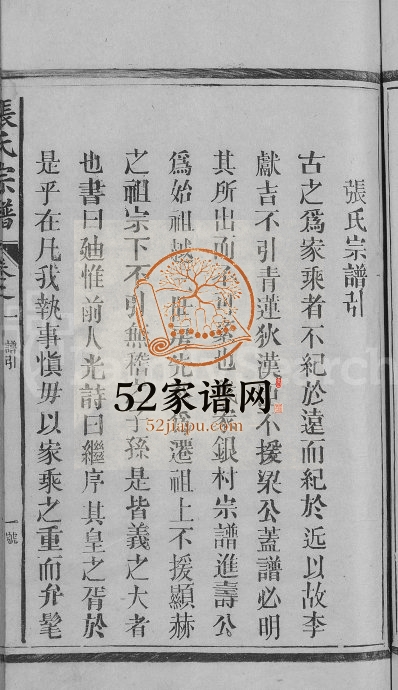 張氏宗譜引
古之爲家乘者不紀於遠而紀於近以故李
獻吉不引青蓮狄漢不援梁公蓋譜必明
其所出而不也銀村宗譜進壽公
爲始祖越遷祖上不援顯赫
之祖宗下不引無稽子孫是皆義之大者
也書曰廸惟前人光詩曰繼序其皇之胥於
是乎在凡我執事愼毋以家乘之重而弁髦
張氏宗譜
卷之一
譜引
一號
52家谱网
52jiapu.com